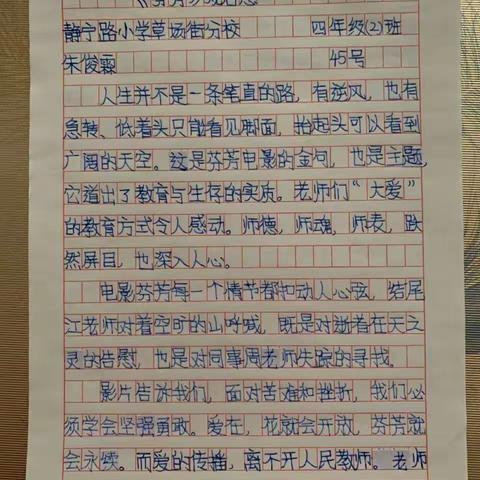 静宁路小学草场街分校 四年级(2)班
朱俊霖 45号
人生并不是一条笔直的路，有逆风，也有
急转、低着头只能看见脚面，抬起头可以看到
广阔的天空。这是芬芳电影的金句，也是主题，
它道出了教育与生存的实质。老师们“大爱”
的教育方式令人感动。师德，师魂，师表，跃
然屏目，也深入人心。
电影芬芳每一个情节都扣动人心弦，结尾
江老师对着空旷的山呼喊，既是对逝者在天之
灵的告慰，也是对同事周老师失踪的寻找。
影片告诉我们，面对苦难和挫折，我们必
须学会坚强勇敢。爱在，花就会开放，芬芳就
会永续。而爱的传播，离不开人民教师。老师